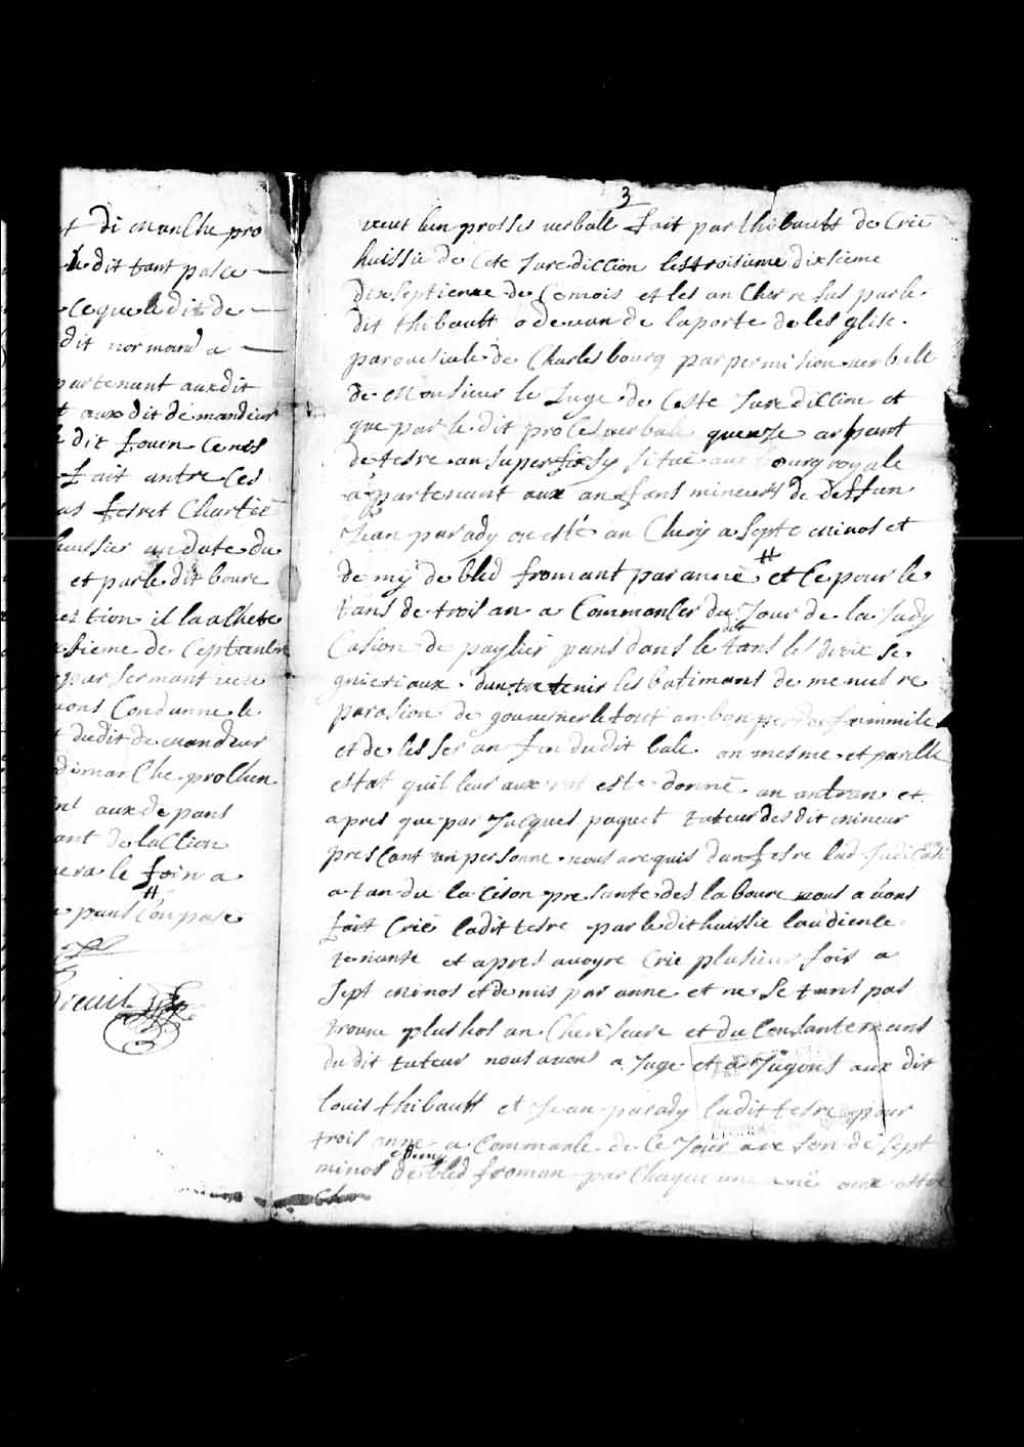 t di manche pro
le dit tant pas ce
ce que le dit de
dit normand a
partenant aux dit
t aux dit demandeur
dit fouen
fait antre ces
as feret Chartie
huissier an date du
et par le dit boure
estion il la achete
sieme de Ceptanbre
par sermant
vons Condanne le
t du dit demandeur
dimarche prochen
aux depans
ant de laction
era le foin a
pans Conpase
3
veut lun prosses verballe fait par thibautt de Crie
huissie de Cete Juredicion les troisieme dixsieme
dixseptieme de Cemois et les an Chere fas par le
dit thibautt o devan de la porte de les glise
paroissiale de Charlesbourg par permision verbale
de Monsieur le Juge de Ceste Juredicion et
que par le dit proces verbale quense arpant
de terre an superfisy situe aux bourg royale
apartenant aux anfans mineurs de deffun
Jean parady on esté an Chery a septe minos et
de my de bled fromant par anné # et Ce pour le
tans de trois an a Commanser du Jour de la Judy
Casion de paylier pans dans le dit tans les droit se
gnieriaux dantretenir les batimans de menus re
parasion de gouverner le tout an bon per de fammile
et de lesser an fin du dit bale an mesme et parelle
estat quil leur aura esté donné an antran et
apres que par Jacques paquet tuteur des dit mineur
presant an personne nous a requis dan fere lad Judicasion
atandu la Ceson presante des laboure nous avons
fait Crie ladit terre par le dit huissie laudience
tenante et apres avoyre Crie plusieur fois a
sept minos et demis par anne et ne se tans pas
trouve plus hos an Cheriseure et du Consantemans
du dit tuteur nous avons a Juge et a Jugons aux dit
louis thibautt et Jean parady ladit terre pour
trois anne a Commanse de Ce Jour a re son de sept
et demy
minos de bled froman par Chaque anne
Char